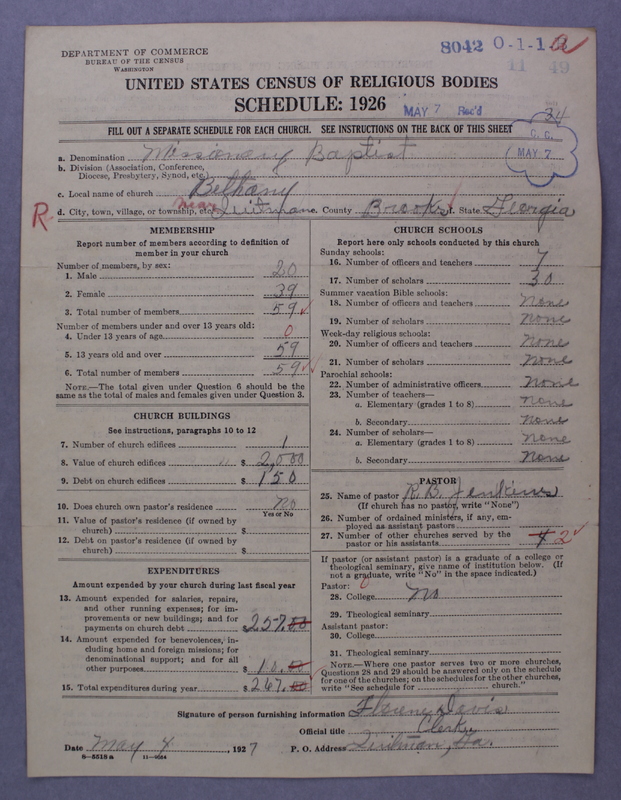 DEPARTMENT OF COMMERCE
BUREAU OF THE CENSUS
WASHINGTON
8042 0-1-1 a
11 49
UNITED STATES CENSUS OF RELIGIOUS BODIES
SCHEDULE: 1926
MAY 7 Rec'd
24
FILL OUT A SEPARATE SCHEDULE FOR EACH CHURCH. SEE INSTRUCTIONS ON THE BACK OF THIS SHEET
C. C.
MAY 7
a. Denomination Missionary Baptist
b. Division (Association, Conference,
Diocese, Presbytery, Synod, etc.)
c. Local name of church Bethany
R d. City, town, village, or township, etc. near Quitman e. County Brooks f. State Georgia
MEMBERSHIP
Report number of members according to definition of
member in your church
Number of members, by sex:
1. Male 20
2. Female 39
3. Total number of members 59
Number of members under and over 13 years old:
4. Under 13 years of age 0
5. 13 years old and over 59
6. Total number of members 59
NOTE.—The total given under Question 6 should be the
same as the total of males and females given under Question 3.
CHURCH BUILDINGS
See instructions, paragraphs 10 to 12
7. Number of church edifices 1
8. Value of church edifices $ 2,000
9. Debt on church edifices $ 150
10. Does church own pastor's residence No
Yes or No
11. Value of pastor's residence (if owned by
church) $
12. Debt on pastor's residence (if owned by
church) $
EXPENDITURES
Amount expended by your church during last fiscal year
13. Amount expended for salaries, repairs,
and other running expenses; for im-
provements or new buildings; and for
payments on church debt $ 257.00
14. Amount expended for benevolences, in-
cluding home and foreign missions; for
denominational support; and for all
other purposes $ 10.00
15. Total expenditures during year $ 267.00
CHURCH SCHOOLS
Report here only schools conducted by this church
Sunday schools:
16. Number of officers and teachers 7
17. Number of scholars 30
Summer vacation Bible schools:
18. Number of officers and teachers None
19. Number of scholars None
Week-day religious schools:
20. Number of officers and teachers None
21. Number of scholars None
Parochial schools:
22. Number of administrative officers None
23. Number of teachers—
a. Elementary (grades 1 to 8) None
b. Secondary None
24. Number of scholars—
a. Elementary (grades 1 to 8) None
b. Secondary None
PASTOR
25. Name of pastor R. B. Jenkins
(If church has no pastor, write "None")
26. Number of ordained ministers, if any, em-
ployed as assistant pastors
27. Number of other churches served by the
pastor or his assistants 4 2
If pastor (or assistant pastor) is a graduate of a college or
theological seminary, give name of institution below. (If
not a graduate, write "No" in the space indicated.)
Pastor: 0
28. College No
29. Theological seminary
Assistant pastor:
30. College
31. Theological seminary
NOTE.—Where one pastor serves two or more churches,
Questions 28 and 29 should be answered only on the schedule
for one of the churches; on the schedules for the other churches,
write "See schedule for church."
Signature of person furnishing information Davis
Official title Clerk
Date May 4, 1927 P. O. Address Quitman, Ga.
8—5518a 11—9054